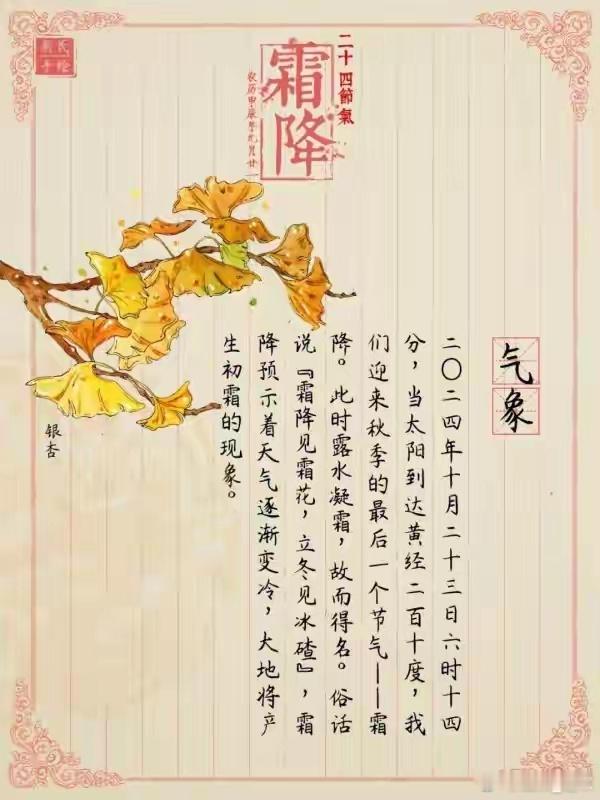 二十四節氣
霜降
农历甲辰年九月廿一
气象
二〇二四年十月二十三日六时十四
分，当太阳到达黄经二百十度，我
们迎来秋季的最后一个节气——霜
降。此时露水凝霜，故而得名。俗话
说『霜降见霜花，立冬见冰碴』，霜
降预示着天气逐渐变冷，大地将产
生初霜的现象。
银杏